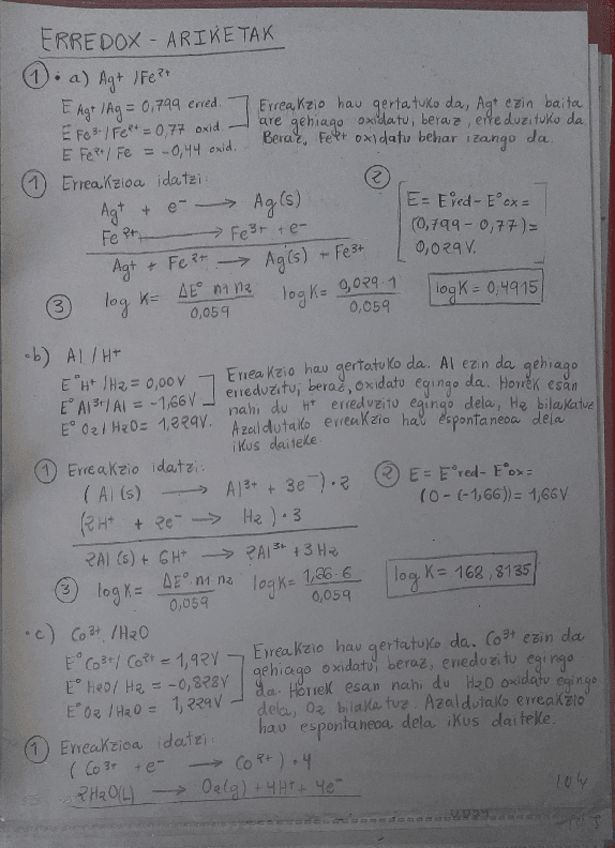 ERREDOX - ARIKETAK
① · a) Ag⁺ / Fe²⁺
E Ag⁺ / Ag = 0,799 erred.
E Fe³⁺ / Fe²⁺ = 0,77 oxid.
E Fe²⁺ / Fe = -0,44 oxid.
Erreakzio hau gertatuko da, Ag⁺ ezin baita
are gehiago oxidatu, beraz, erreduzituko da.
Beraz, Fe²⁺ oxidatu behar izango da.
① Erreakzioa idatzi:
Ag⁺ + e⁻ → Ag(s)
Fe²⁺ → Fe³⁺ + e⁻
Ag⁺ + Fe²⁺ → Ag(s) + Fe³⁺
② E = E°red - E°ox =
(0,799 - 0,77) =
0,029 V.
③ log K = ΔE° · n1 n2 / 0,059 log K = 0,029 · 1 / 0,059 log K = 0,4915
· b) Al / H⁺
E° H⁺ / H₂ = 0,00 V
E° Al³⁺ / Al = -1,66 V
E° O₂ / H₂O = 1,229V.
Erreakzio hau gertatuko da. Al ezin da gehiago
erreduzitu, beraz, oxidatu egingo da. Horrek esan
nahi du H⁺ erreduzitu egingo dela, H₂ bilakatuz.
Azaldutako erreakzio hau espontaneoa dela
ikus daiteke.
① Erreakzio idatzi:
(Al (s) → Al³⁺ + 3e⁻) · 2
(2H⁺ + 2e⁻ → H₂) · 3
2Al (s) + 6H⁺ → 2Al³⁺ + 3H₂
② E = E°red - E°ox =
(0 - (-1,66)) = 1,66V
③ log K = ΔE° · n1 n2 / 0,059 log K = 1,66 · 6 / 0,059 log K = 168,8135
· c) Co³⁺ / H₂O
E° Co³⁺ / Co²⁺ = 1,92V
E° H₂O / H₂ = -0,828V
E° O₂ / H₂O = 1,229V
Erreakzio hau gertatuko da. Co³⁺ ezin da
gehiago oxidatu, beraz, erreduzitu egingo
da. Horrek esan nahi du H₂O oxidatu egingo
dela, O₂ bilakatuz. Azaldutako erreakzio
hau espontaneoa dela ikus daiteke.
① Erreakzioa idatzi:
(Co³⁺ + e⁻ → Co²⁺) · 4
2H₂O(L) → O₂(g) + 4H⁺ + 4e⁻